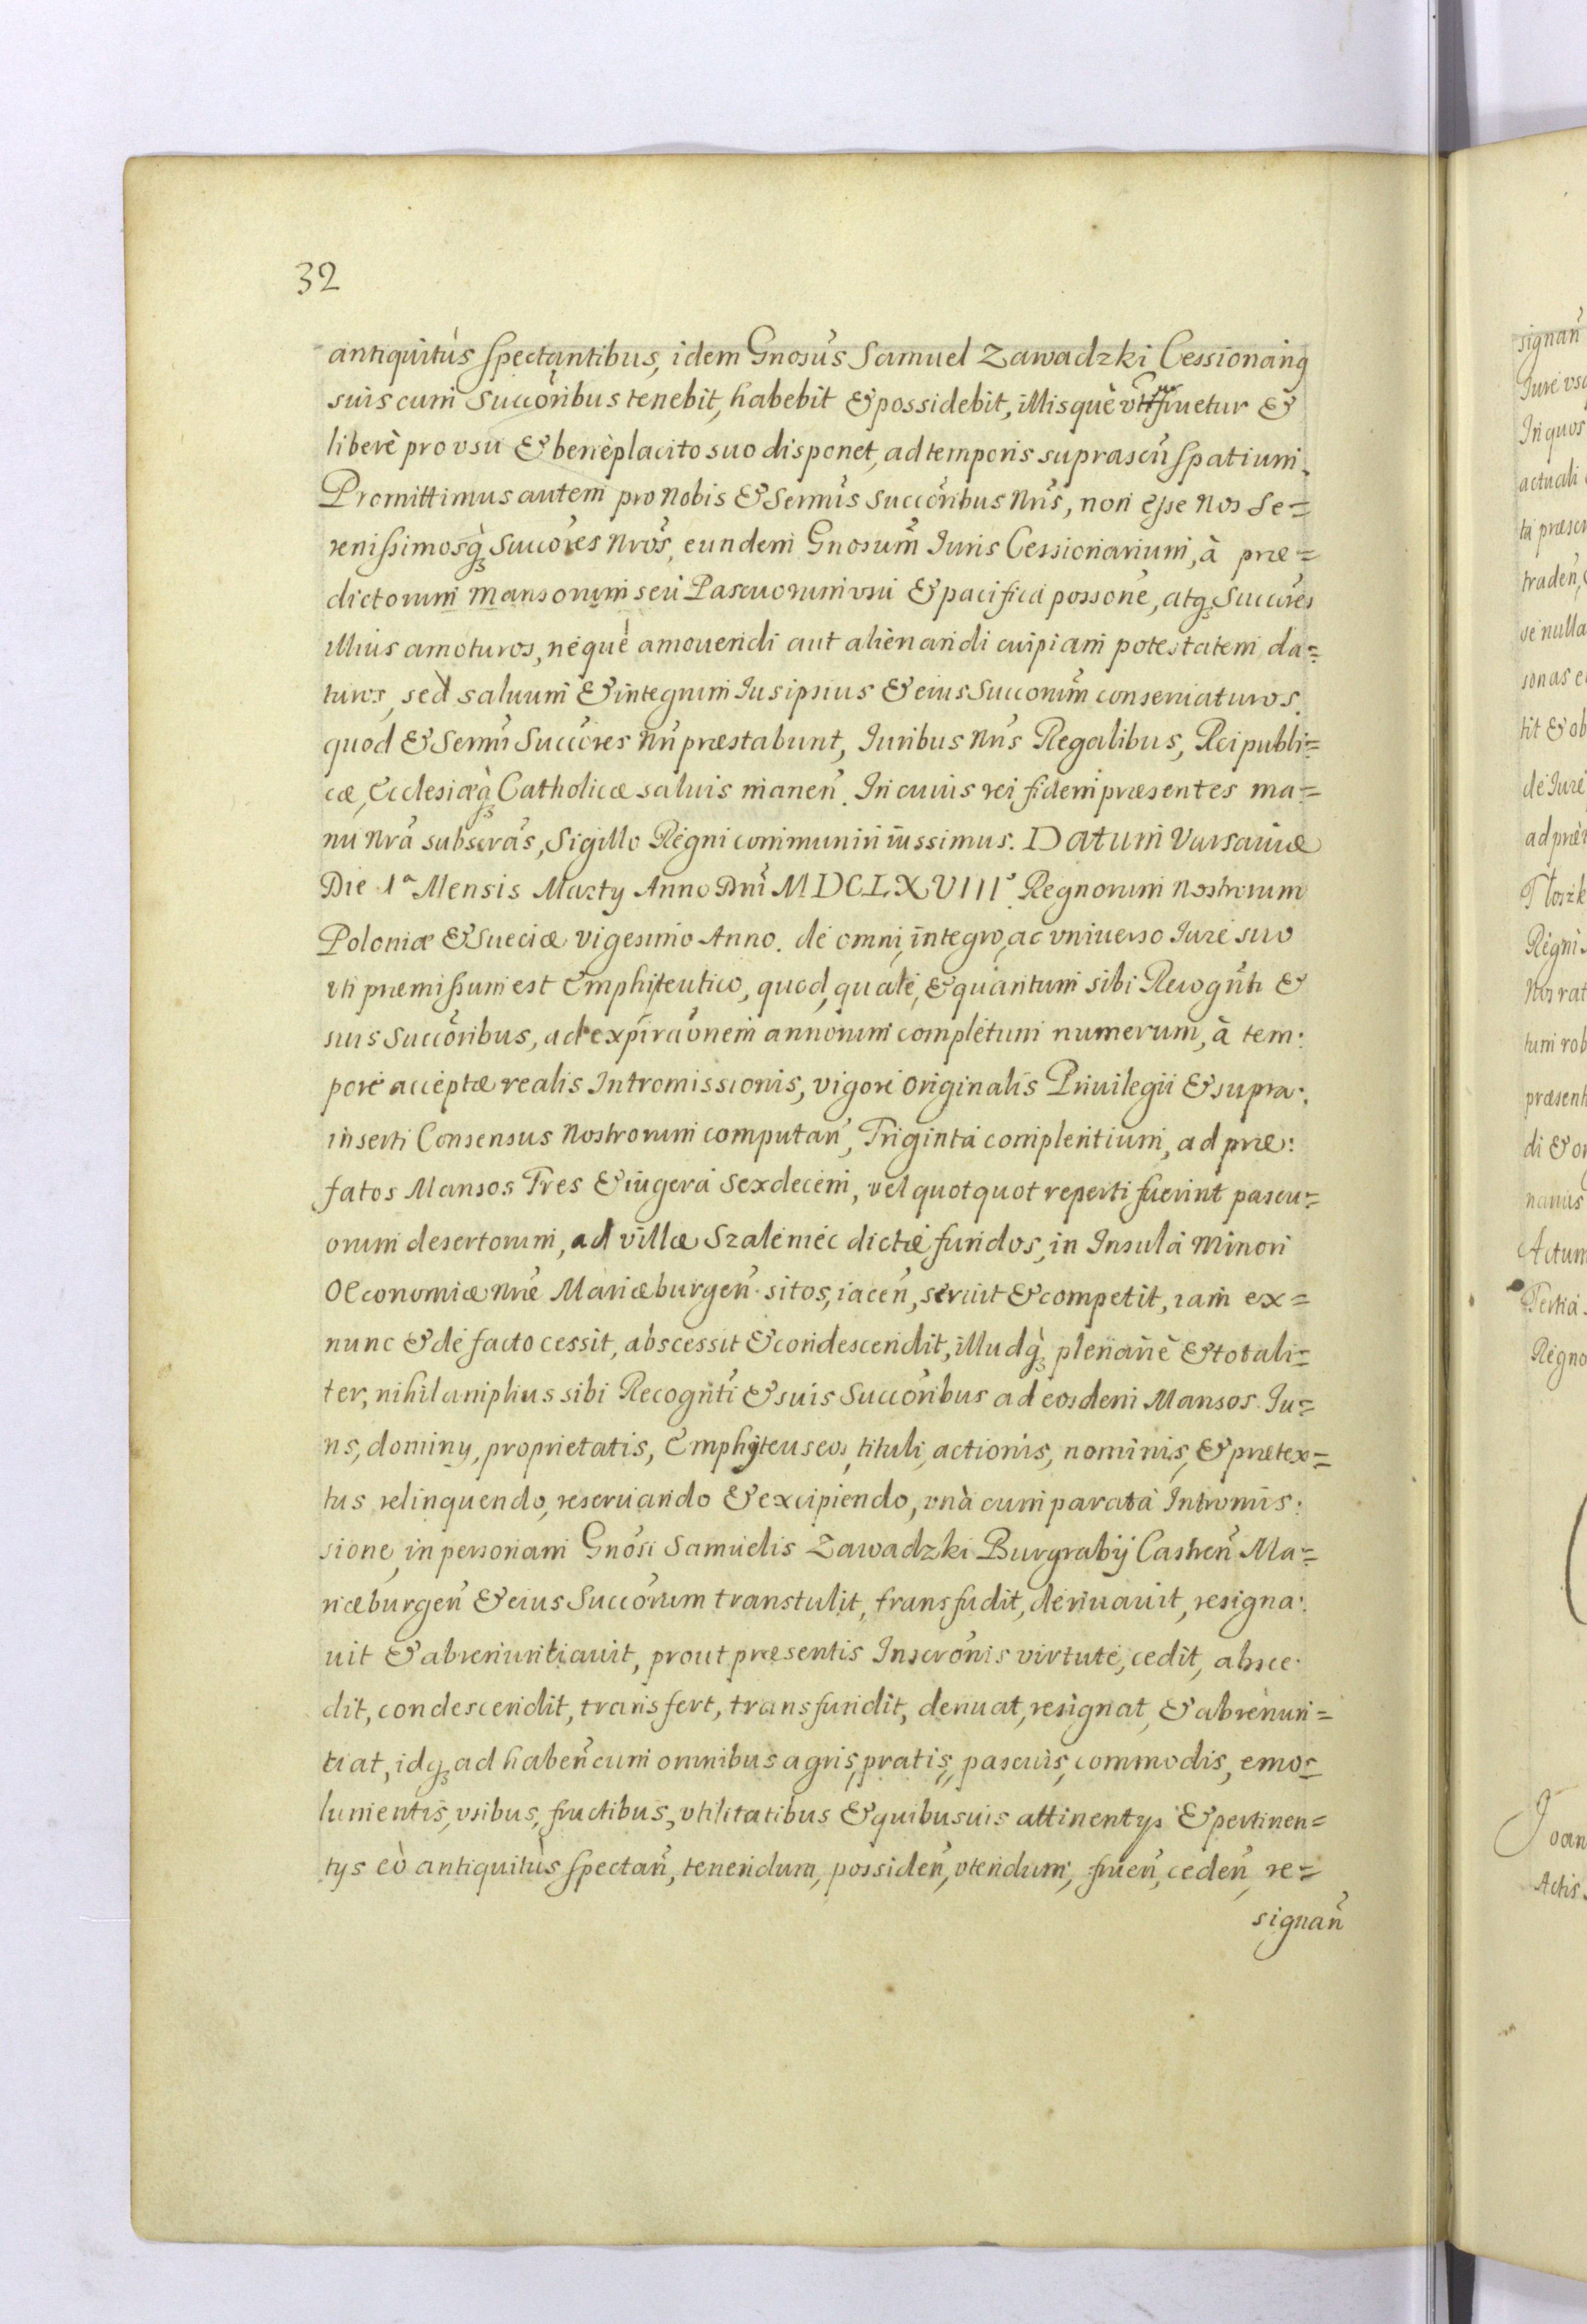 32
antiquitùs spectantibus, idem Gnosus Samuel Zawadzki Cessionariq
suis cum Succoribus tenebit, habebit & possidebit, illisquè fruetur &
liberè pro vsu & benèplacito suo disponet, ad temporis suprascri spatium.
Promittimus autem pro Nobis & Sermis Succoribus Nris, non esse Nos Se=
renissimosq́ Succores Nros, eundem Gnosum Iuris Cessionarium, à præ=
dictorum Mansorum seu Pascuorum usu & pacifica possone, atq Succores
illius amoturos, nequè amouendi aut alienandi cuipiam potestatem da=
turos, sed saluum & integrum Ius ipsius & eius Succorum conseruaturos.
quod & Sermi Succores Nri præstabunt, Iuribus Nris Regalibus, Reipubli=
cæ, Ecclesiæq́ Catholicæ saluis manen. In cuius rei fidem præsentes ma=
nu Nra subscras, Sigillo Regni communiri iussimus. Datum Varsauiæ
Die 1ª Mensis Marty Anno Dni MDCLXVIIIº. Regnorum Nostrorum
Poloniæ & Sueciæ vigesimo Anno. de omni, integro, ac vniuerso Iure suo
vti præmissum est Emphiteutico, quod, quale, & quantum sibi Recognti &
suis Succoribus, ad expiraonem annorum completum numerum, à tem:
pore acceptæ realis Intromissionis, vigore Originalis Priuilegii & supra:
inserti Consensus Nostrorum computan, Triginta complentium, ad præ:
fatos Mansos Tres & iugera Sexdecem, vel quotquot reperti fuerint pascu=
orum desertorum, ad villæ Szaleniec dictæ fundos, in Insula Minori
Oeconomiæ Nræ Mariæburgen sitos, iacen, seruit & competit, iam ex=
nunc & de facto cessit, abscessit & condescendit, illudq́ plenariè & totali=
ter, nihil amplius sibi Recognti & suis Succoribus ad eosdem Mansos Iu=
ris, dominy, proprietatis, Emphyteuseos, tituli, actionis, nominis, & prætex=
tus relinquendo, reseruando & excipiendo, vnà cum parata Intromis:
sione, in personam Gnosi Samuelis Zawadzki Burgrabÿ Castren Ma=
riæburgen & eius Succorum transtulit, transfudit, deriuauit, resigna:
uit & abrenuntiauit, prout præsentis Inscronis virtute, cedit, absce:
dit, condescendit, transfert, transfundit, deriuat, resignat, & abrenun=
tiat, idq ad haben cum omnibus agris, pratis, pascuis, commodis, emo=
lumentis, vsibus, fructibus, vtilitatibus & quibusuis attinentys & pertinen=
tys eò antiquitùs spectan, tenendum, possiden, vtendum, fruen, ceden, re=
signan